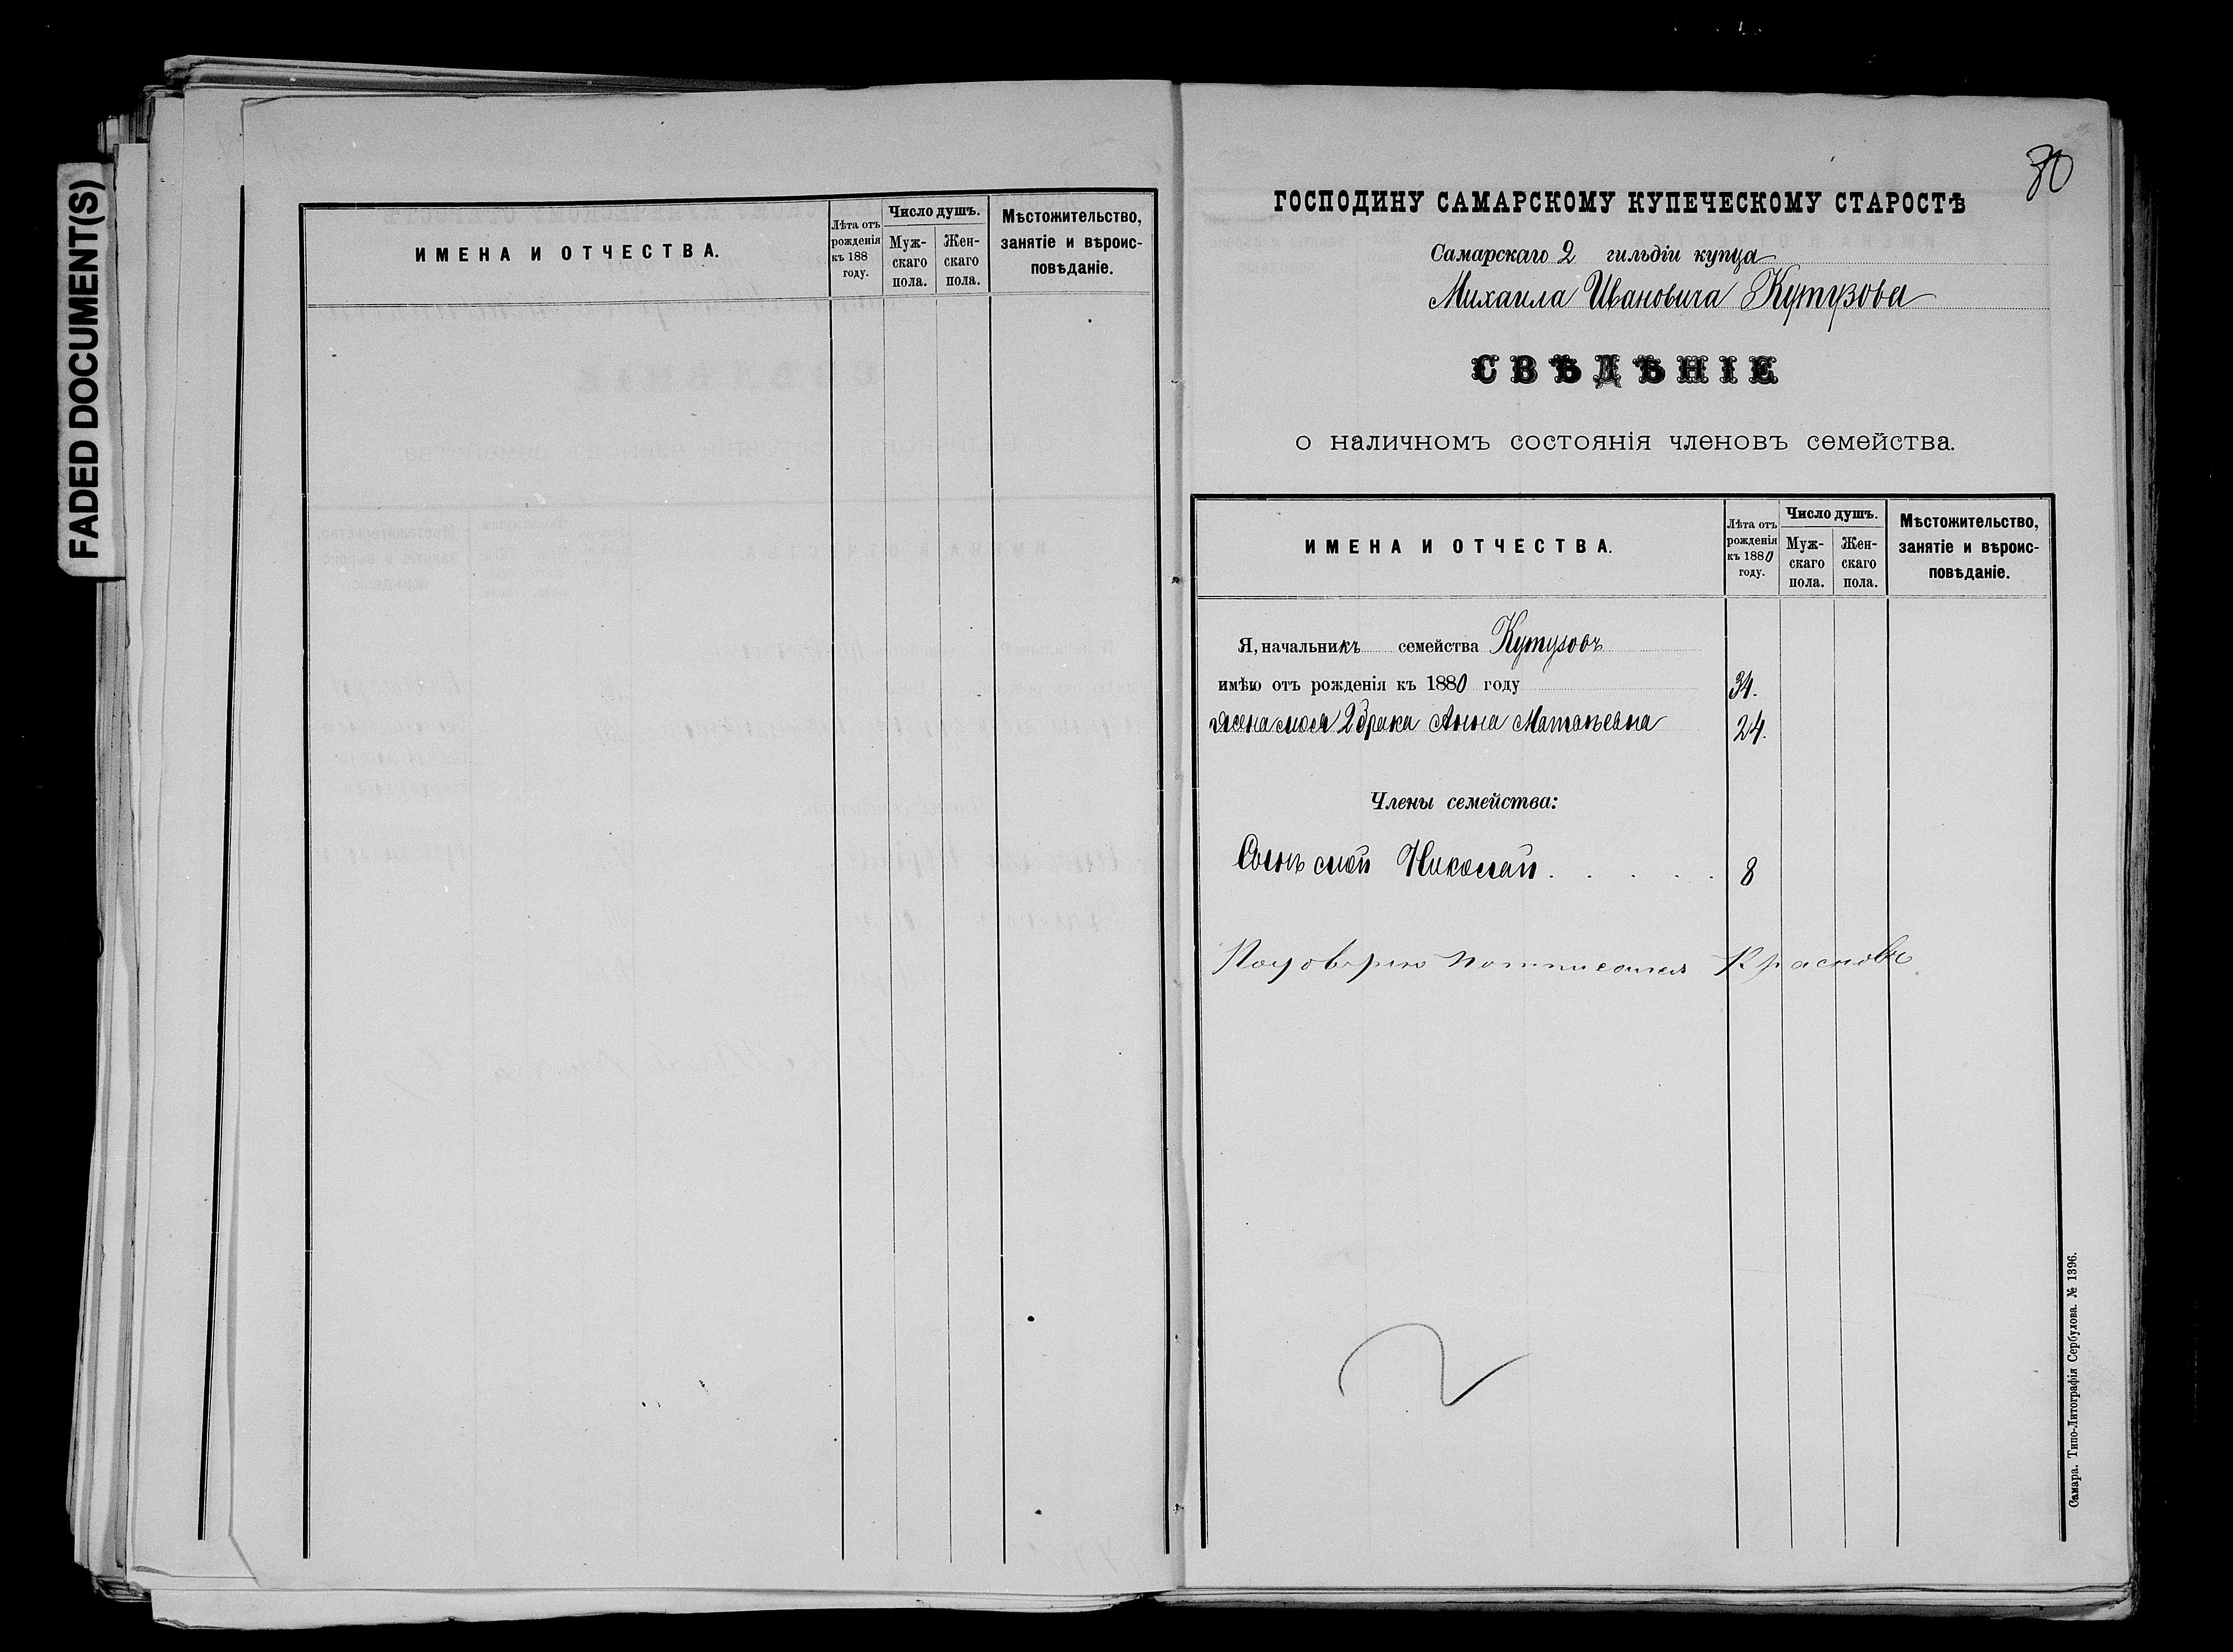 FADED DOCUMENT(S)
ИМЕНА И ОТЧЕСТВА.
Лѣта отъ рожденія къ 188 году.
Число душъ.
Мужскаго пола.
Женскаго пола.
Мѣстожительство, занятіе и вѣроисповѣданіе.
80
ГОСПОДИНУ САМАРСКОМУ КУПЕЧЕСКОМУ СТАРОСТѢ
Самарскаго 2 гильдіи купца
Михаила Ивановича Кутузова
СВѢДѢНІЕ
о наличномъ состоянія членовъ семейства.
ИМЕНА И ОТЧЕСТВА.
Лѣта отъ рожденія къ 1880 году.
Число душъ.
Мужскаго пола.
Женскаго пола.
Мѣстожительство, занятіе и вѣроисповѣданіе.
Я, начальникъ семейства Кутузовъ
имѣю отъ рожденія къ 1880 году 34.
жена моя 2 брака Анна Матвѣевна 24.
Члены семейства:
Сынъ мой Николай . . . . . 8
Красновъ
Самара. Типо-Литографія Сербулова. № 1396.